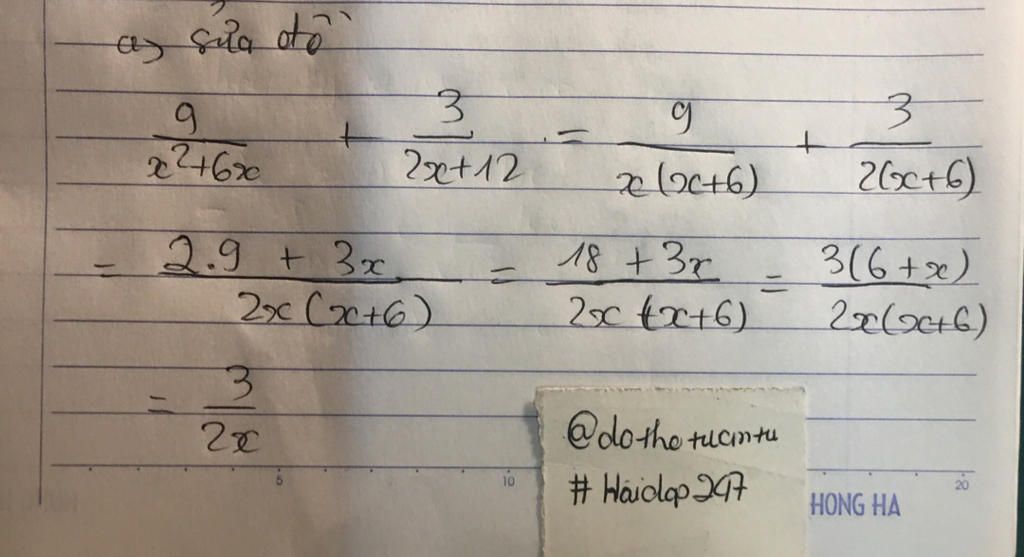 a) sửa đồ
9/(x²+6x) + 3/(2x+12) = 9/(x(x+6)) + 3/(2(x+6))
= (2.9 + 3x)/(2x(x+6)) = (18 + 3x)/(2x(x+6)) = 3(6+x)/(2x(x+6))
= 3/(2x)
@dothotuantu
# Hoidap247
5 10 20
HONG HA